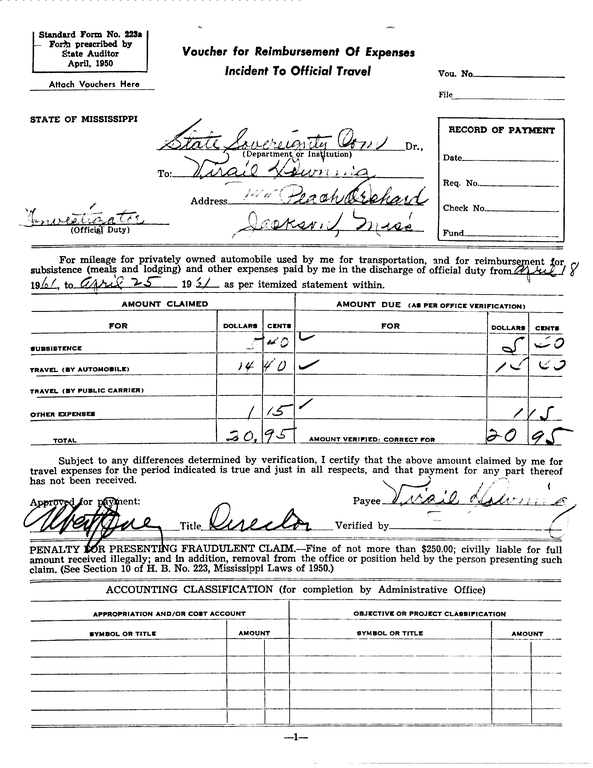 Standard Form No. 223a
Form prescribed by
State Auditor
April, 1950
Attach Vouchers Here
Voucher for Reimbursement Of Expenses
Incident To Official Travel
Vou. No.
File
STATE OF MISSISSIPPI
State Sovereignty Com Dr.,
(Department or Institution)
To: Virgil Downing
Address Peach Orchard
Jackson, Miss
Investigator
(Official Duty)
RECORD OF PAYMENT
Date
Req. No.
Check No.
Fund
For mileage for privately owned automobile used by me for transportation, and for reimbursement for
subsistence (meals and lodging) and other expenses paid by me in the discharge of official duty from April 18
1961, to April 25 1961 as per itemized statement within.
AMOUNT CLAIMED AMOUNT DUE (AS PER OFFICE VERIFICATION)
FOR DOLLARS CENTS FOR DOLLARS CENTS
SUBSISTENCE 5 40 5
TRAVEL (BY AUTOMOBILE) 14 40
TRAVEL (BY PUBLIC CARRIER)
OTHER EXPENSES 1 15 1 15
TOTAL 20.95 AMOUNT VERIFIED: CORRECT FOR 20 95
Subject to any differences determined by verification, I certify that the above amount claimed by me for
travel expenses for the period indicated is true and just in all respects, and that payment for any part thereof
has not been received.
Approved for payment: Payee Virgil Downing
Albert Jones Title Director Verified by
PENALTY FOR PRESENTING FRAUDULENT CLAIM.—Fine of not more than $250.00; civilly liable for full
amount received illegally; and in addition, removal from the office or position held by the person presenting such
claim. (See Section 10 of H. B. No. 223, Mississippi Laws of 1950.)
ACCOUNTING CLASSIFICATION (for completion by Administrative Office)
APPROPRIATION AND/OR COST ACCOUNT OBJECTIVE OR PROJECT CLASSIFICATION
SYMBOL OR TITLE AMOUNT SYMBOL OR TITLE AMOUNT
—1—